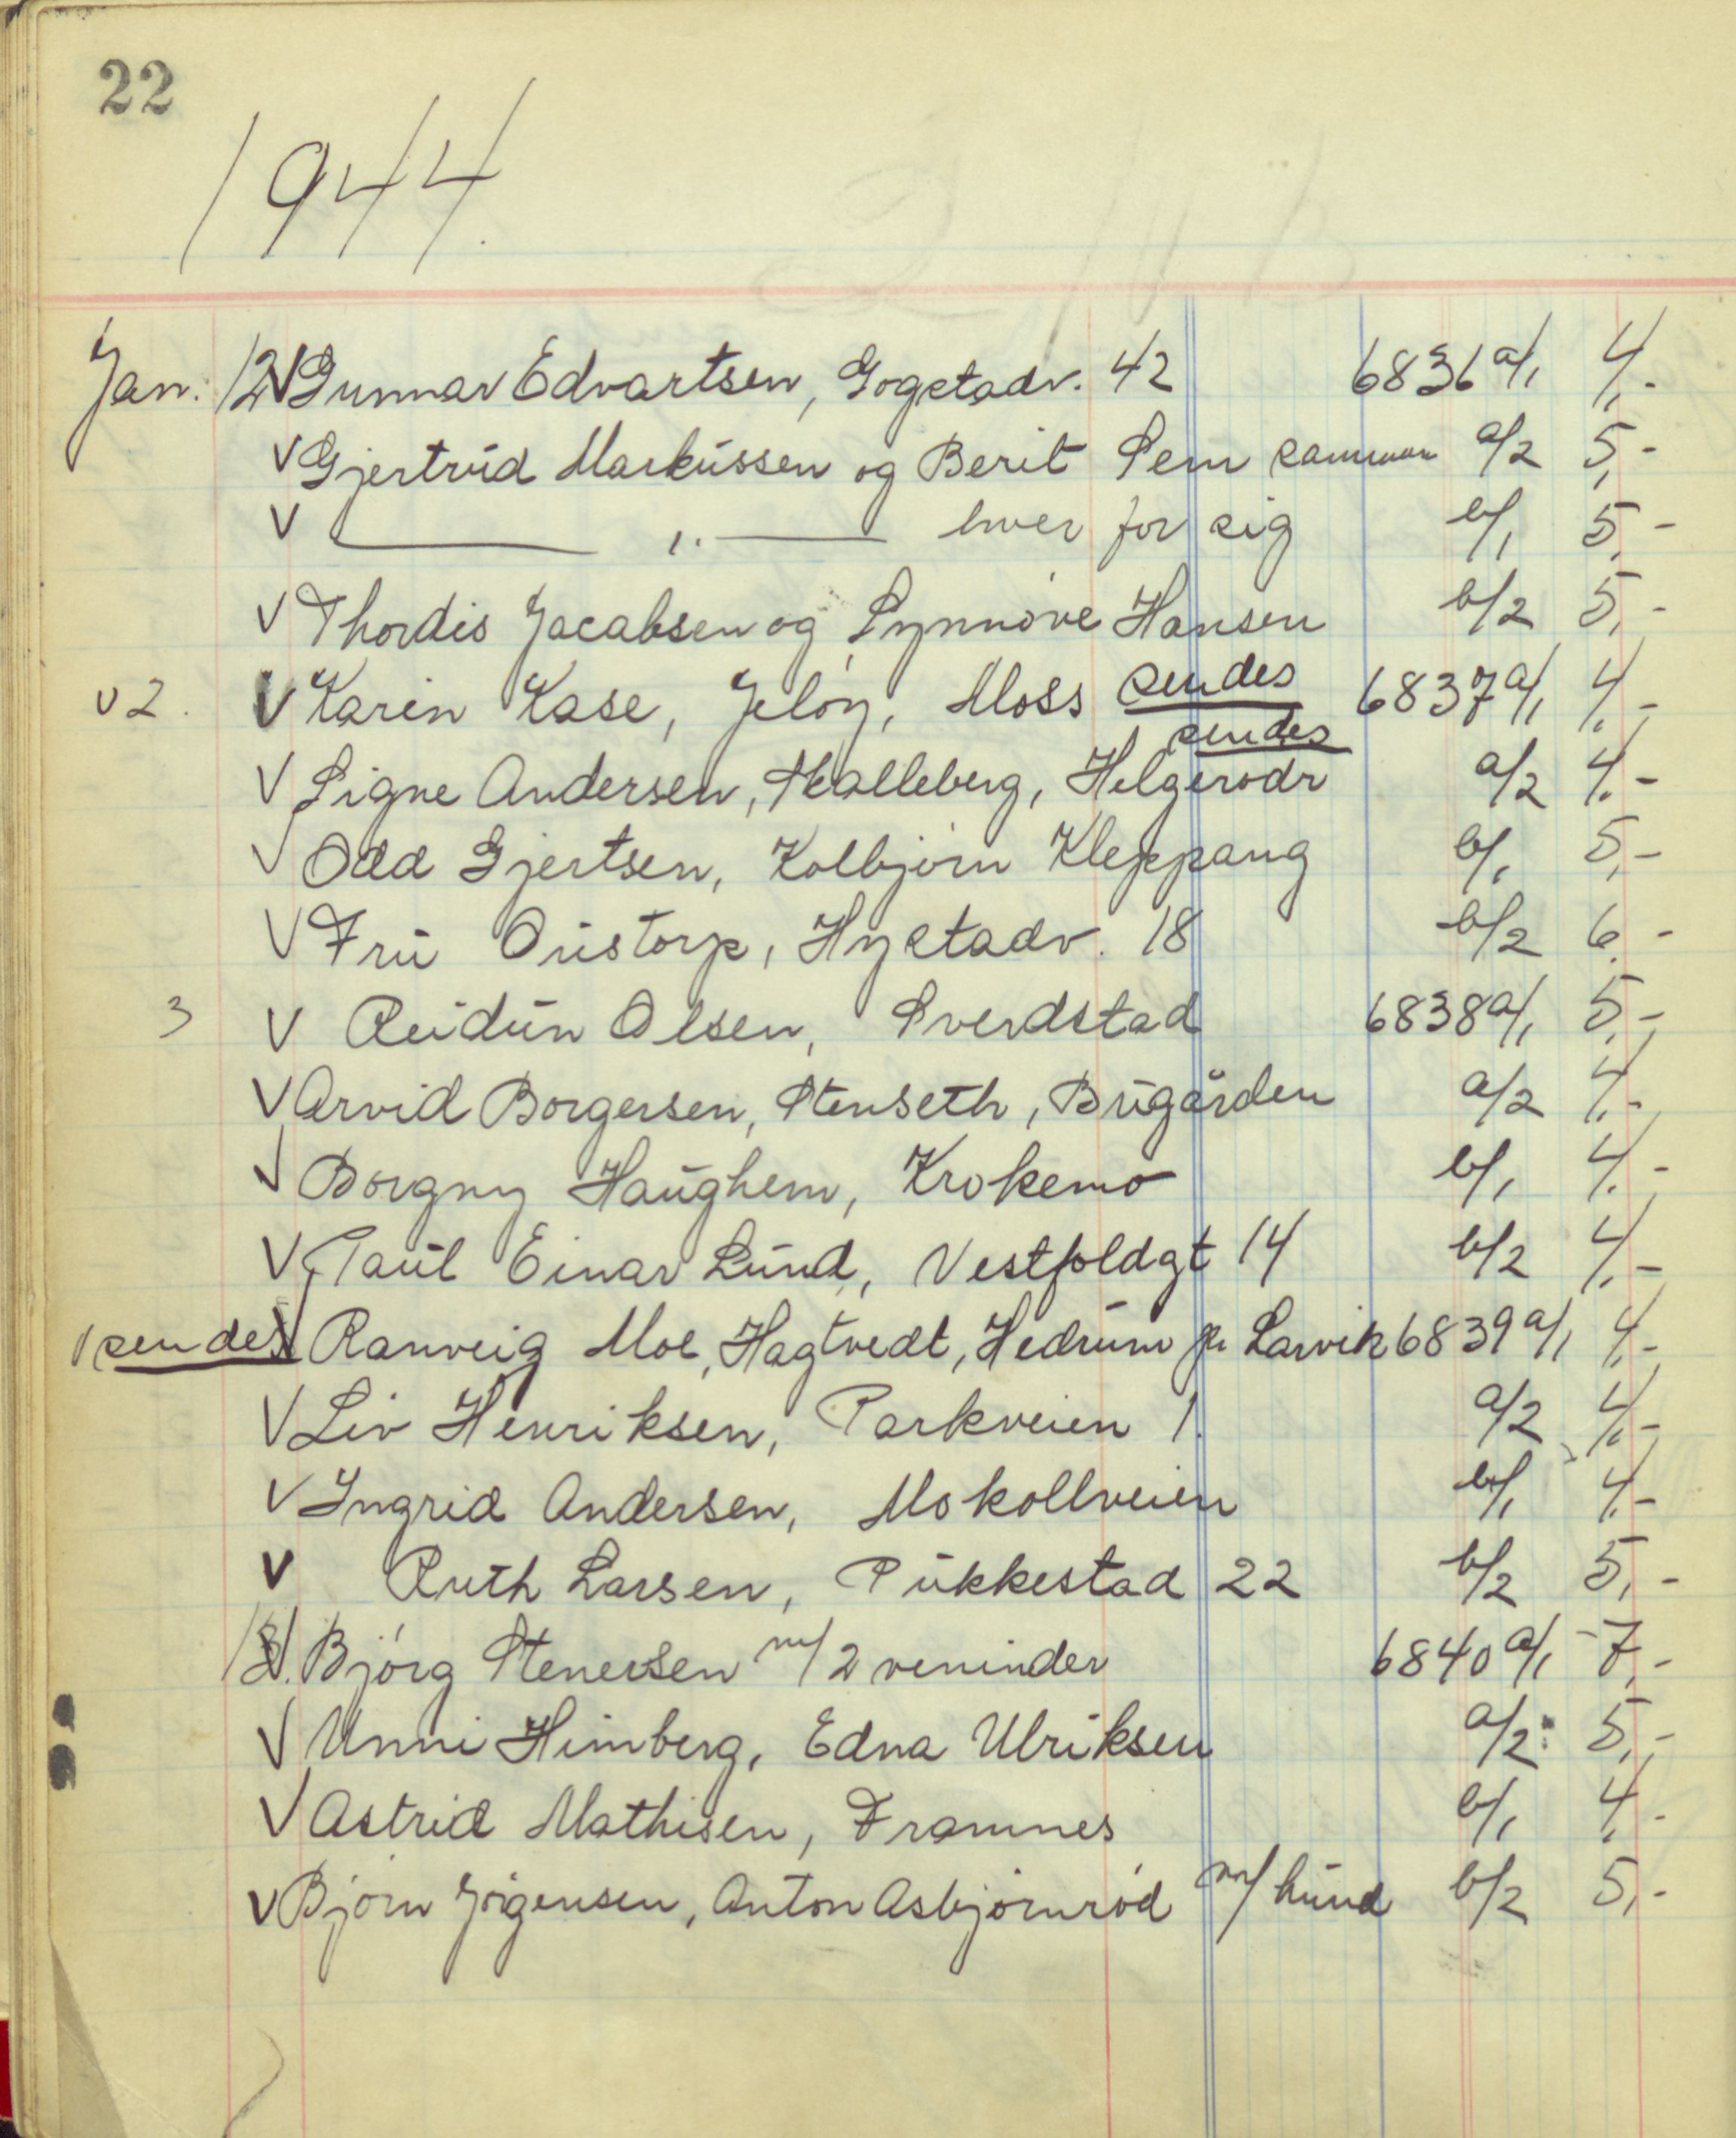 22
1944.
Jan. 12 V Gunnar Edvartsen, Gogstadv. 42 6836 a/1 4,-
V Gjertrud Markussen og Berit Sem sammen a/2 5,-
V —— " —— hver for sig b/1 5,-
V Thordis Jacobsen og Synnøve Hansen b/2 5,-
v 2. V Karin Kase, Jeløy, Moss sendes 6837 a/1 4,-
sendes
V Signe Andersen, Skalleberg, Helgerødr a/2 4,-
V Odd Gjertsen, Kolbjørn Kleppang b/1 5,-
V Fru Oustorp, Hystadv. 18 b/2 6,-
3 V Reidun Olsen, Sverdstad 6838 a/1 5,-
V Arvid Borgersen, Stenseth, Bugården a/2 4,-
V Borgny Haughem, Krokemo b/1 4,-
V Paul Einar Lund, Vestfoldgt 14 b/2 4,-
sendes V Ranveig Moe, Hagtvedt, Hedrum pr Larvik 6839 a/1 4,-
V Liv Henriksen, Parkveien 1. a/2 4,-
V Ingrid Andersen, Mokollveien b/1 4,-
V Ruth Larsen, Pukkestad 22 b/2 5,-
13. V Bjørg Stenersen m/2 veninder 6840 a/1 7,-
V Unni Himberg, Edna Ulriksen a/2 5,-
V Astrid Mathisen, Framnes b/1 4,-
V Bjørn Jørgensen, Anton Asbjørnrød m/hund b/2 5,-